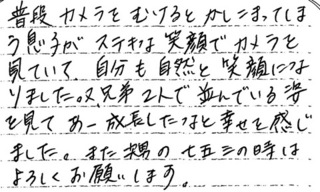 普段 カメラを むけると かしこまってしま
う息子が ステキな 笑顔で カメラを
見ていて、自分も自然と 笑顔にな
りました。又兄弟2人で 並んでいる姿
を見て あー成長したなと 幸せを感じ
ました。また 次男の 七五三の時は
よろしく お願いします。